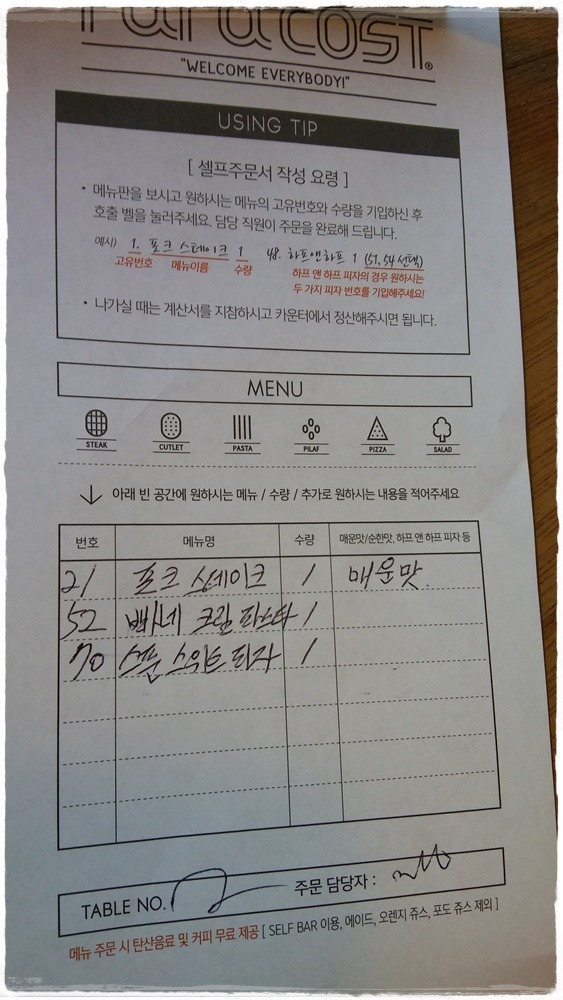 COST®
"WELCOME EVERYBODY!"
USING TIP
[ 셀프주문서 작성 요령 ]
• 메뉴판을 보시고 원하시는 메뉴의 고유번호와 수량을 기입하신 후
호출 벨을 눌러주세요. 담당 직원이 주문을 완료해 드립니다.
예시) 1. 포크 스테이크 1 48. 하프앤하프 1 (51, 54 선택)
고유번호 메뉴이름 수량 하프 앤 하프 피자의 경우 원하시는
두 가지 피자 번호를 기입해주세요!
• 나가실 때는 계산서를 지참하시고 카운터에서 정산해주시면 됩니다.
MENU
STEAK CUTLET PASTA PILAF PIZZA SALAD
↓ 아래 빈 공간에 원하시는 메뉴 / 수량 / 추가로 원하시는 내용을 적어주세요
번호 메뉴명 수량 매운맛/순한맛, 하프 앤 하프 피자 등
21 포크 스테이크 1 매운맛
52 빠네 크림 파스타 1
70 스위트 피자 1
TABLE NO. 2 주문 담당자 :
메뉴 주문 시 탄산음료 및 커피 무료 제공 [ SELF BAR 이용, 에이드, 오렌지 쥬스, 포도 쥬스 제외 ]